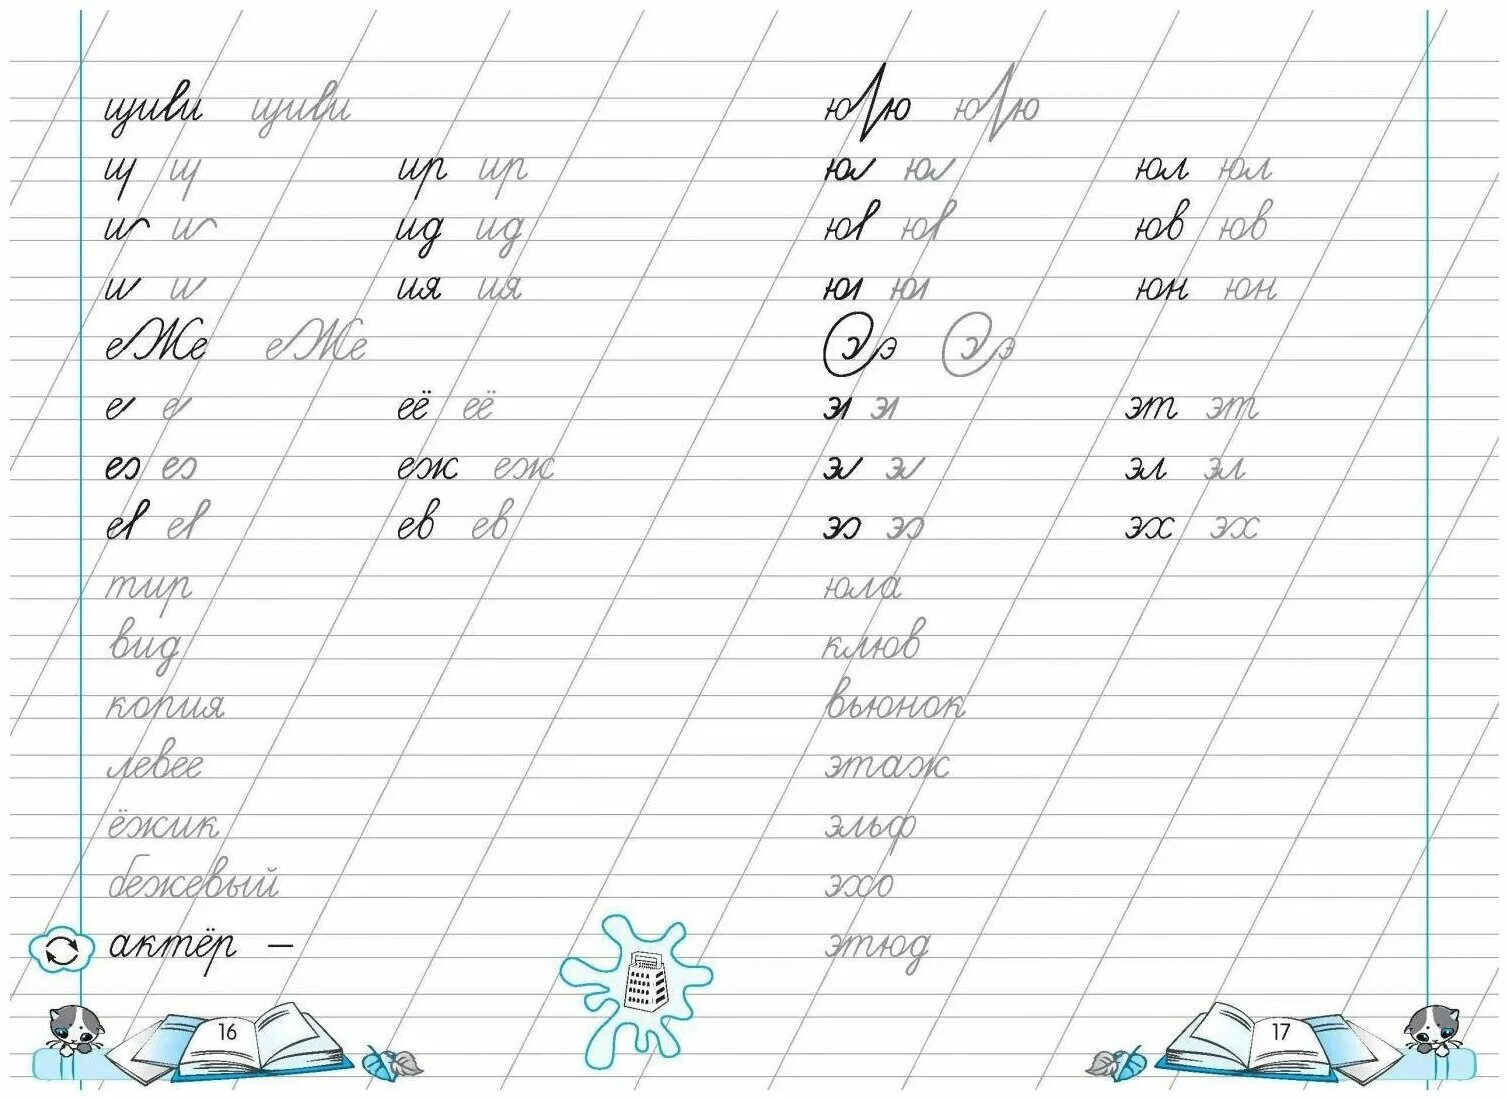 щиви щиви
щ щ ир ир
и и ид ид
и и ия ия
еЖе еЖе
е е её её
ез ез еж еж
ев ев ев ев
тир
вид
копия
левее
ёжик
бежевый
актёр –
16
ю ю ю ю
юл юл юл юл
юв юв юв юв
юн юн
Э э Э э
эт эт
эл эл эл эл
эх эх
юла
клюв
вьюнок
этаж
эльф
эхо
этюд
17